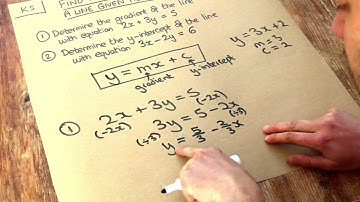 KS
FIND
A LINE GIVEN
① Determine the gradient of the line
with equation 2x + 3y = 5
② Determine the y-intercept of the line
with equation 3x - 2y = 6
y = 3x + 2
m = 3
c = 2
y = mx + c
gradient y-intercept
① 2x + 3y = 5
(-2x) (-2x)
3y = 5 - 2x
(÷3) (÷3)
y = 5/3 - 2/3x